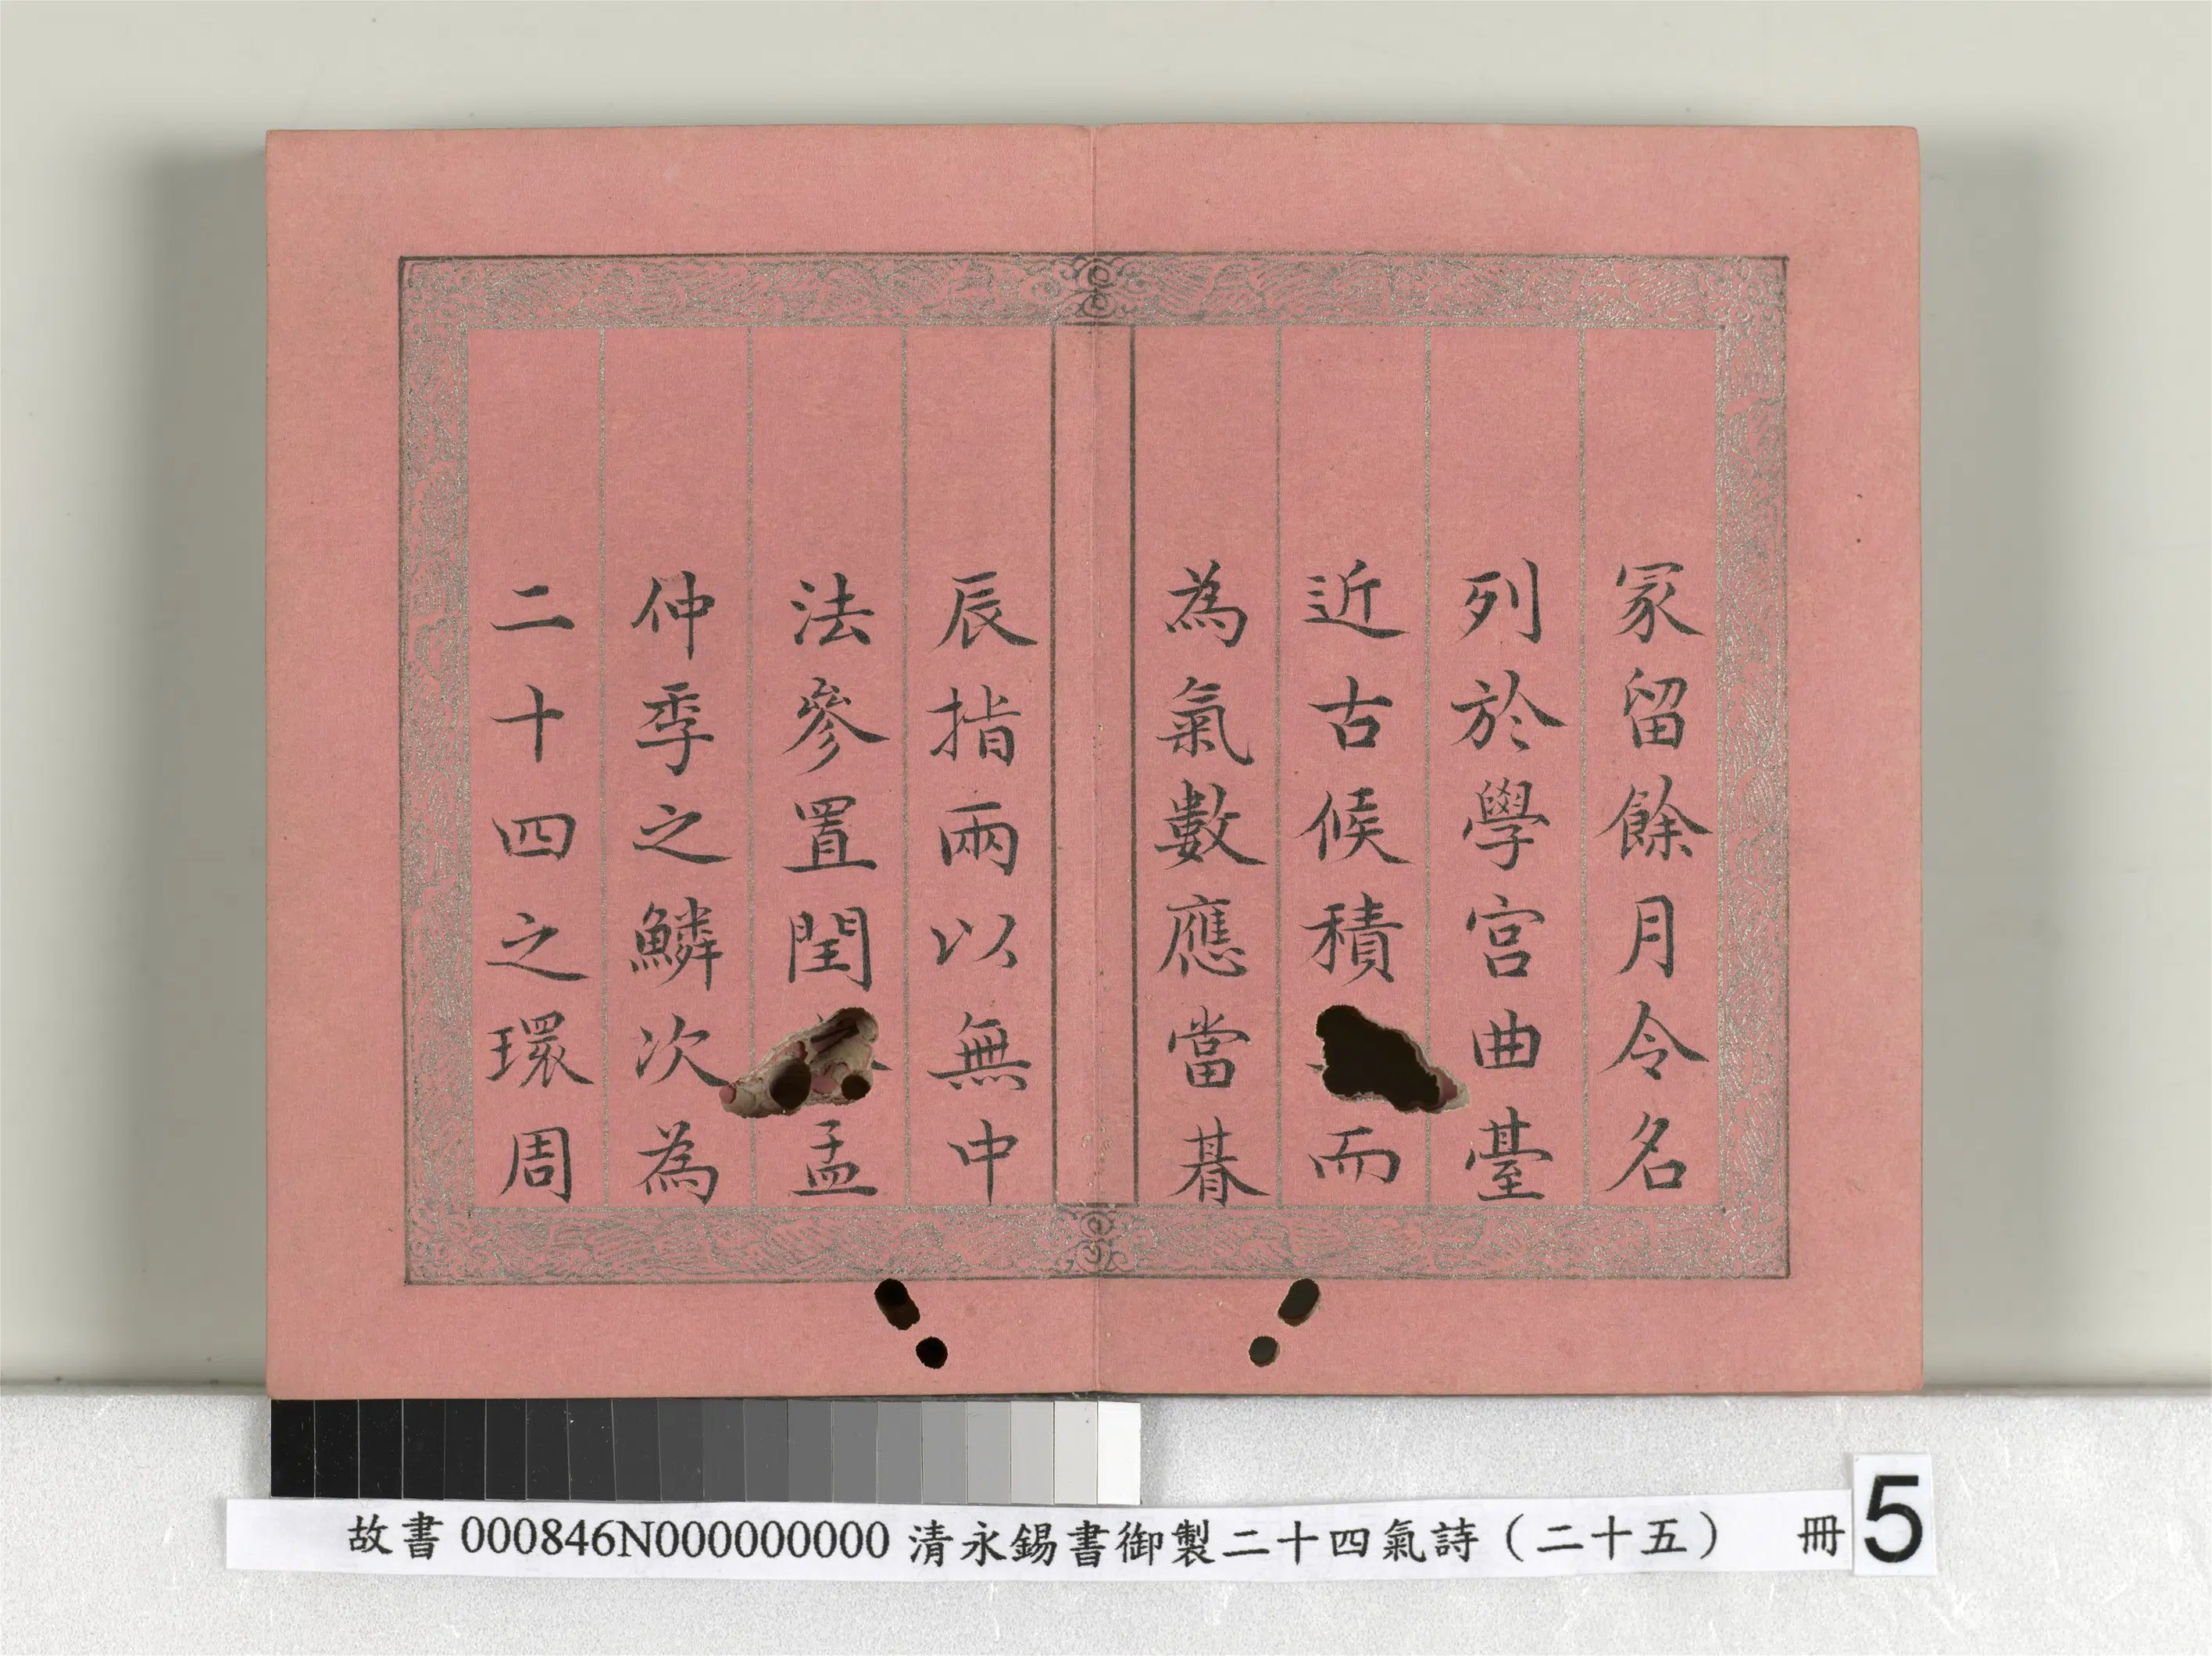 冡留餘月令名
列於學宮曲臺
近古候積而
為氣數應當朞
辰指兩以無中
法參置閏孟
仲季之鱗次為
二十四之環周
故書 000846N000000000 清永錫書御製二十四氣詩（二十五） 冊 5